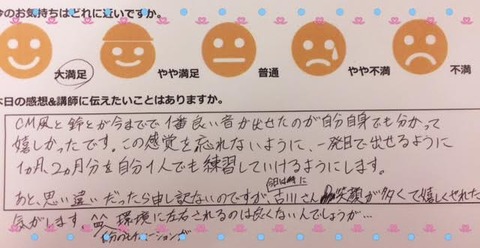 今のお気持ちはどれに近いですか。
大満足 やや満足 普通 やや不満 不満
本日の感想&講師に伝えたいことはありますか。
CM風と鈴とが今までで1番良い音が出せたのが自分自身でも分かって
嬉しかったです。この感覚を忘れないように、一発目で出せるように
1ヵ月、2ヵ月分を自分1人でも練習していけるようにします。
今日は特に
あと、思い違いだったら申し訳ないのですが、古川さん笑顔が多くて嬉しくされた
気がします。^^ 環境に左右されるのは良くないんでしょうが…